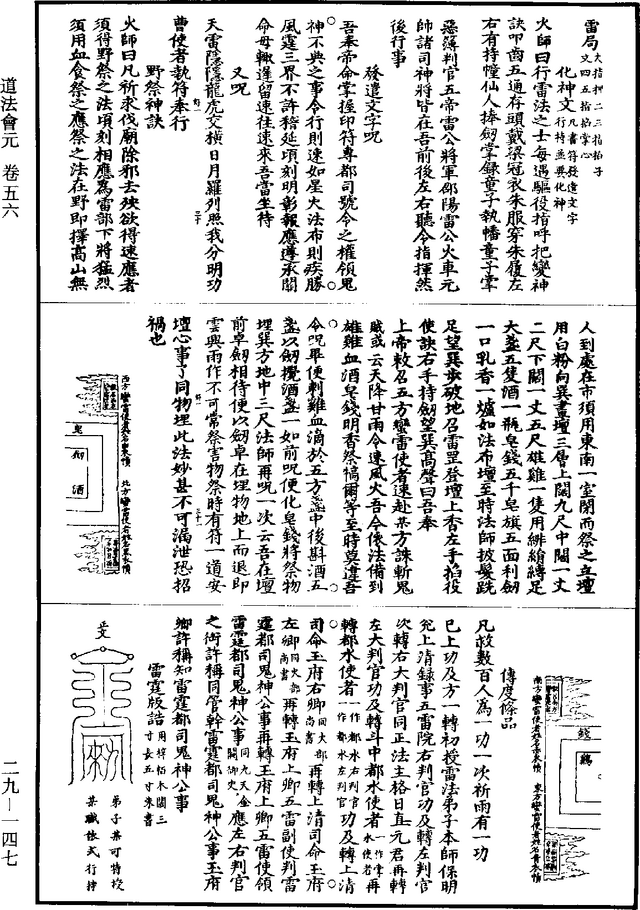 道法會元 卷五六
二九—一四七
雷局大指掐二三指掐子
又四五指掐掌心
化神文凡書符發遣文字
行持並與化神
火師曰行雷法之士每遇驅役指呼把變神
訣叩齒五通存頭戴梁冠衣朱服穿朱履左
右有持幢仙人捧劍掌錄童子執幡童子掌
惡簿判官五帝雷公將軍邵陽雷公火車元
帥諸司神將皆在吾前後左右聽令指揮然
後行事
發遣文字呪
吾奉帝命掌握印符專都司號令之權領鬼
神不典之事令行則速如星火法布則疾勝
風霆三界不許稽延頃刻明彰報應遵承閫
命毋輒遲留速往速來吾當坐待
又呪
天雷隱隱龍虎交橫日月羅列照我分明功
曹使者執符奉行
野祭神訣
火師曰凡祈求伐廟除邪去殃欲得速應者
須得野祭之法頃刻相應為雷部下將猛烈
須用血食祭之應祭之法在野即擇高山無
人到處在市須用東南一室閉而祭之立壇
用白粉向巽畫壇三層上闊九尺中闊一丈
二尺下闊一丈五尺雄雞一隻用緋繒縛足
大盞五隻酒一瓶皂錢五千皂旗五面利劍
一口乳香一爐如法布壇至時法師披髮跣
足望巽步破地召雷罡登壇上香左手掐役
使訣右手持劍望巽高聲曰吾奉
上帝敕召五方蠻雷使者速赴某方誅斬鬼
賊或云天降甘雨令速風火吾今依法備到
雄雞血酒皂錢明香祭犒爾等至時莫違吾
令呪畢便刺雞血滴於五方盞中後斟酒五
盞以劍攪酒盞一如前呪便化皂錢將祭物
埋巽方地中三尺法師再呪一次云吾在壇
前卓劍相待便以劍卓在埋物地上而退即
雲興雨作不可常祭害物祭時有符一道安
壇心事了同物埋此法妙甚不可漏泄恐招
禍也
西方蠻雷使者姓名白衣幘
北方蠻雷使者姓名皂衣幘
皂
劍
酒
南方蠻雷使者姓名赤衣幘
東方蠻雷使者姓名青衣幘
錢
雞
凡救數百人為一功一次祈雨有一功
傳度條品
已上功及方一轉初授雷法弟子本師保明
充上清錄事五雷院右判官功及轉左判官
次轉右大判官同正法主格日直元君再轉
左大判官功及轉斗中都水使者一作掌水使者再
轉都水使者一作都水右判官一作都水左判官功及轉上清
司命玉府右卿同大部尚書再轉上清司命玉府
左卿同火部尚書再轉玉府上卿五雷副使判雷
霆都司鬼神公事再轉玉府上卿五雷使領
雷霆都司鬼神公事同九天金闕御史應左右判官
之銜許稱同管幹雷霆都司鬼神公事玉府
卿許稱知雷霆都司鬼神公事
雷霆版誥用梓桕木闊三
寸長五寸朱書
正文
弟子某可特授
某職依式行持